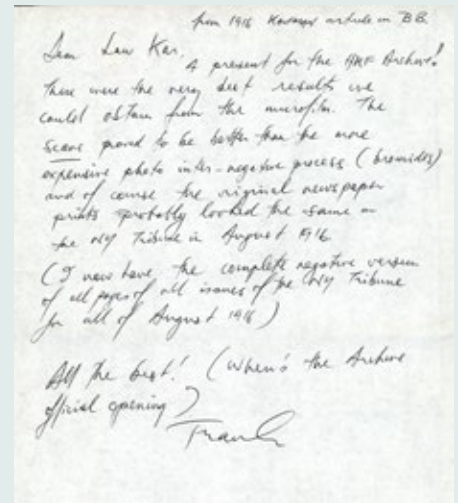 from 1916 article in BB.
Dear Law Kar,
A present for the HKF Archive!
These were the very best results we
could obtain from the microfilm. The
scans proved to be better than the more
expensive photo inter-negative process (bromides)
and of course the original newspaper
prints probably looked the same in
the NY Tribune in August 1916
(I now have the complete negative version
of all pages of all issues of the NY Tribune
for all of August 1916)
All the best! (When's the Archive
official opening?)
Frank